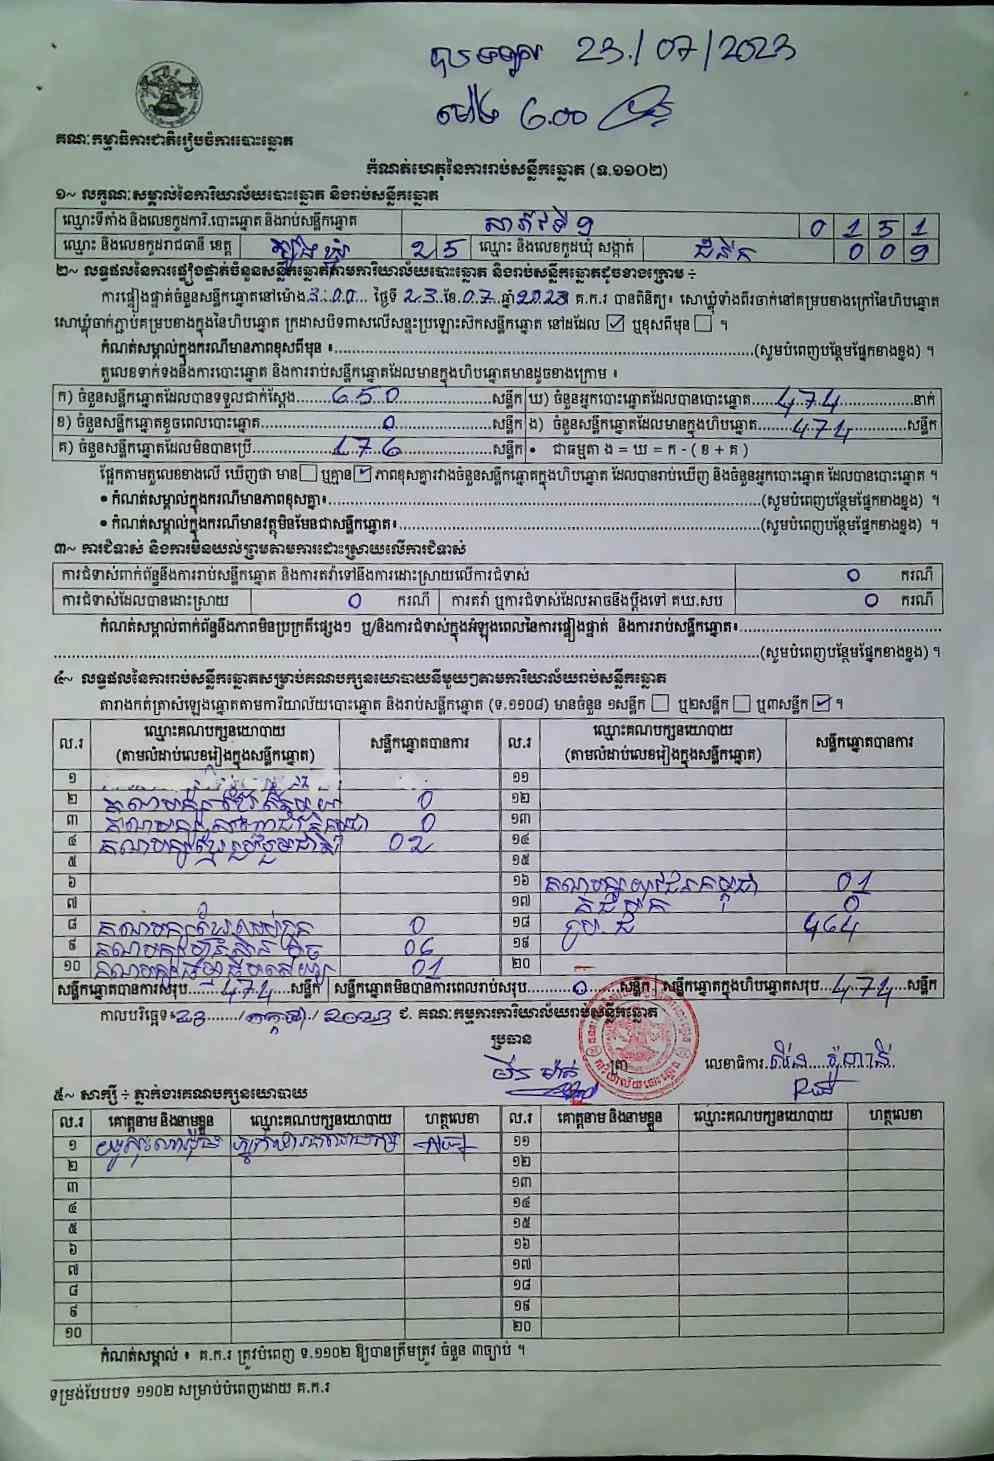 23/07/2023
ម៉ោង 6.00
គណៈកម្មាធិការជាតិរៀបចំការបោះឆ្នោត
កំណត់ហេតុនៃការរាប់សន្លឹកឆ្នោត (ទ.១១០២)
១~ លក្ខណៈសម្គាល់នៃការិយាល័យបោះឆ្នោត និងរាប់សន្លឹកឆ្នោត
ឈ្មោះទីតាំង និងលេខកូដការិ.បោះឆ្នោត និងរាប់សន្លឹកឆ្នោត 0 1 5 1
ឈ្មោះ និងលេខកូដរាជធានី ខេត្ត ត្បូងឃ្មុំ 2 5 ឈ្មោះ និងលេខកូដឃុំ សង្កាត់ 0 0 9
២~ លទ្ធផលនៃការផ្ទៀងផ្ទាត់ចំនួនសន្លឹកឆ្នោតតាមការិយាល័យបោះឆ្នោត និងរាប់សន្លឹកឆ្នោតដូចខាងក្រោម ÷
ការផ្ទៀងផ្ទាត់ចំនួនសន្លឹកឆ្នោតនៅម៉ោង 3:00 ថ្ងៃទី 23 ខែ 07 ឆ្នាំ 2023 គ.ក.រ បានពិនិត្យ៖ សោឃ្លុំទាំងពីរចាក់នៅគម្របខាងក្រៅនៃហិបឆ្នោត
សោឃ្លុំចាក់ភ្ជាប់គម្របខាងក្នុងនៃហិបឆ្នោត ក្រដាសបិទពាសលើសន្ទះប្រឡោះស៊កសន្លឹកឆ្នោត នៅដដែល ☑ ឬខុសពីមុន ☐ ។
កំណត់សម្គាល់ក្នុងករណីមានភាពខុសពីមុន ៖...(សូមបំពេញបន្ថែមផ្នែកខាងខ្នង) ។
តួលេខទាក់ទងនឹងការបោះឆ្នោត និងការរាប់សន្លឹកឆ្នោតដែលមានក្នុងហិបឆ្នោតមានដូចខាងក្រោម ៖
ក) ចំនួនសន្លឹកឆ្នោតដែលបានទទួលជាក់ស្តែង...650...សន្លឹក ឃ) ចំនួនអ្នកបោះឆ្នោតដែលបានបោះឆ្នោត...474...នាក់
ខ) ចំនួនសន្លឹកឆ្នោតខូចពេលបោះឆ្នោត...0...សន្លឹក ង) ចំនួនសន្លឹកឆ្នោតដែលមានក្នុងហិបឆ្នោត...474...សន្លឹក
គ) ចំនួនសន្លឹកឆ្នោតដែលមិនបានប្រើ...176...សន្លឹក • ជាធម្មតា ង = ឃ = ក - ( ខ + គ )
ផ្អែកតាមតួលេខខាងលើ ឃើញថា មាន ☐ ឬគ្មាន ☑ ភាពខុសគ្នារវាងចំនួនសន្លឹកឆ្នោតក្នុងហិបឆ្នោត ដែលបានរាប់ឃើញ និងចំនួនអ្នកបោះឆ្នោត ដែលបានបោះឆ្នោត ។
• កំណត់សម្គាល់ក្នុងករណីមានភាពខុសគ្នា៖...(សូមបំពេញបន្ថែមផ្នែកខាងខ្នង) ។
• កំណត់សម្គាល់ក្នុងករណីមានវត្ថុមិនមែនជាសន្លឹកឆ្នោត៖...(សូមបំពេញបន្ថែមផ្នែកខាងខ្នង) ។
៣~ ការជំទាស់ និងការមិនយល់ព្រមតាមការដោះស្រាយលើការជំទាស់
ការជំទាស់ពាក់ព័ន្ធនឹងការរាប់សន្លឹកឆ្នោត និងការតវ៉ាទៅនឹងការដោះស្រាយលើការជំទាស់ 0 ករណី
ការជំទាស់ដែលបានដោះស្រាយ 0 ករណី ការតវ៉ា ឬការជំទាស់ដែលអាចនឹងប្តឹងទៅ គឃ.សប 0 ករណី
កំណត់សម្គាល់ពាក់ព័ន្ធនឹងភាពមិនប្រក្រតីផ្សេងៗ ឬ/និងការជំទាស់ក្នុងអំឡុងពេលនៃការផ្ទៀងផ្ទាត់ និងការរាប់សន្លឹកឆ្នោត៖...
...(សូមបំពេញបន្ថែមផ្នែកខាងខ្នង) ។
៤~ លទ្ធផលនៃការរាប់សន្លឹកឆ្នោតសម្រាប់គណបក្សនយោបាយនីមួយៗតាមការិយាល័យរាប់សន្លឹកឆ្នោត
តារាងកត់ត្រាសំឡេងឆ្នោតតាមការិយាល័យបោះឆ្នោត និងរាប់សន្លឹកឆ្នោត (ទ.១១០៨) មានចំនួន ១សន្លឹក ☐ ឬ២សន្លឹក ☐ ឬ៣សន្លឹក ☑ ។
ល.រ ឈ្មោះគណបក្សនយោបាយ (តាមលំដាប់លេខរៀងក្នុងសន្លឹកឆ្នោត) សន្លឹកឆ្នោតបានការ ល.រ ឈ្មោះគណបក្សនយោបាយ (តាមលំដាប់លេខរៀងក្នុងសន្លឹកឆ្នោត) សន្លឹកឆ្នោតបានការ
១ ១១
២ គណបក្ស 0 ១២
៣ គណបក្ស 0 ១៣
៤ គណបក្សខ្មែររួបរួមជាតិ 02 ១៤
៥ ១៥
៦ ១៦ គណបក្សយុវជនកម្ពុជា 01
៧ ១៧ 0
៨ គណបក្ស 0 ១៨ ប្រ.ជ 464
៩ គណបក្ស 06 ១៩
១០ គណបក្ស 01 ២០
សន្លឹកឆ្នោតបានការសរុប...474...សន្លឹក សន្លឹកឆ្នោតមិនបានការពេលរាប់សរុប...0...សន្លឹក សន្លឹកឆ្នោតក្នុងហិបឆ្នោតសរុប...474...សន្លឹក
កាលបរិច្ឆេទ៖ 23 / កក្កដា / 2023 ជ. គណៈកម្មការការិយាល័យរាប់សន្លឹកឆ្នោត
ប្រធាន
ត្រា លេខាធិការ
៥~ សាក្សី ÷ ភ្នាក់ងារគណបក្សនយោបាយ
ល.រ គោត្តនាម និងនាមខ្លួន ឈ្មោះគណបក្សនយោបាយ ហត្ថលេខា ល.រ គោត្តនាម និងនាមខ្លួន ឈ្មោះគណបក្សនយោបាយ ហត្ថលេខា
១ ១១
២ ១២
៣ ១៣
៤ ១៤
៥ ១៥
៦ ១៦
៧ ១៧
៨ ១៨
៩ ១៩
១០ ២០
កំណត់សម្គាល់ ៖ គ.ក.រ ត្រូវបំពេញ ទ.១១០២ ឱ្យបានត្រឹមត្រូវ ចំនួន ៣ច្បាប់ ។
ទម្រង់បែបបទ ១១០២ សម្រាប់បំពេញដោយ គ.ក.រ